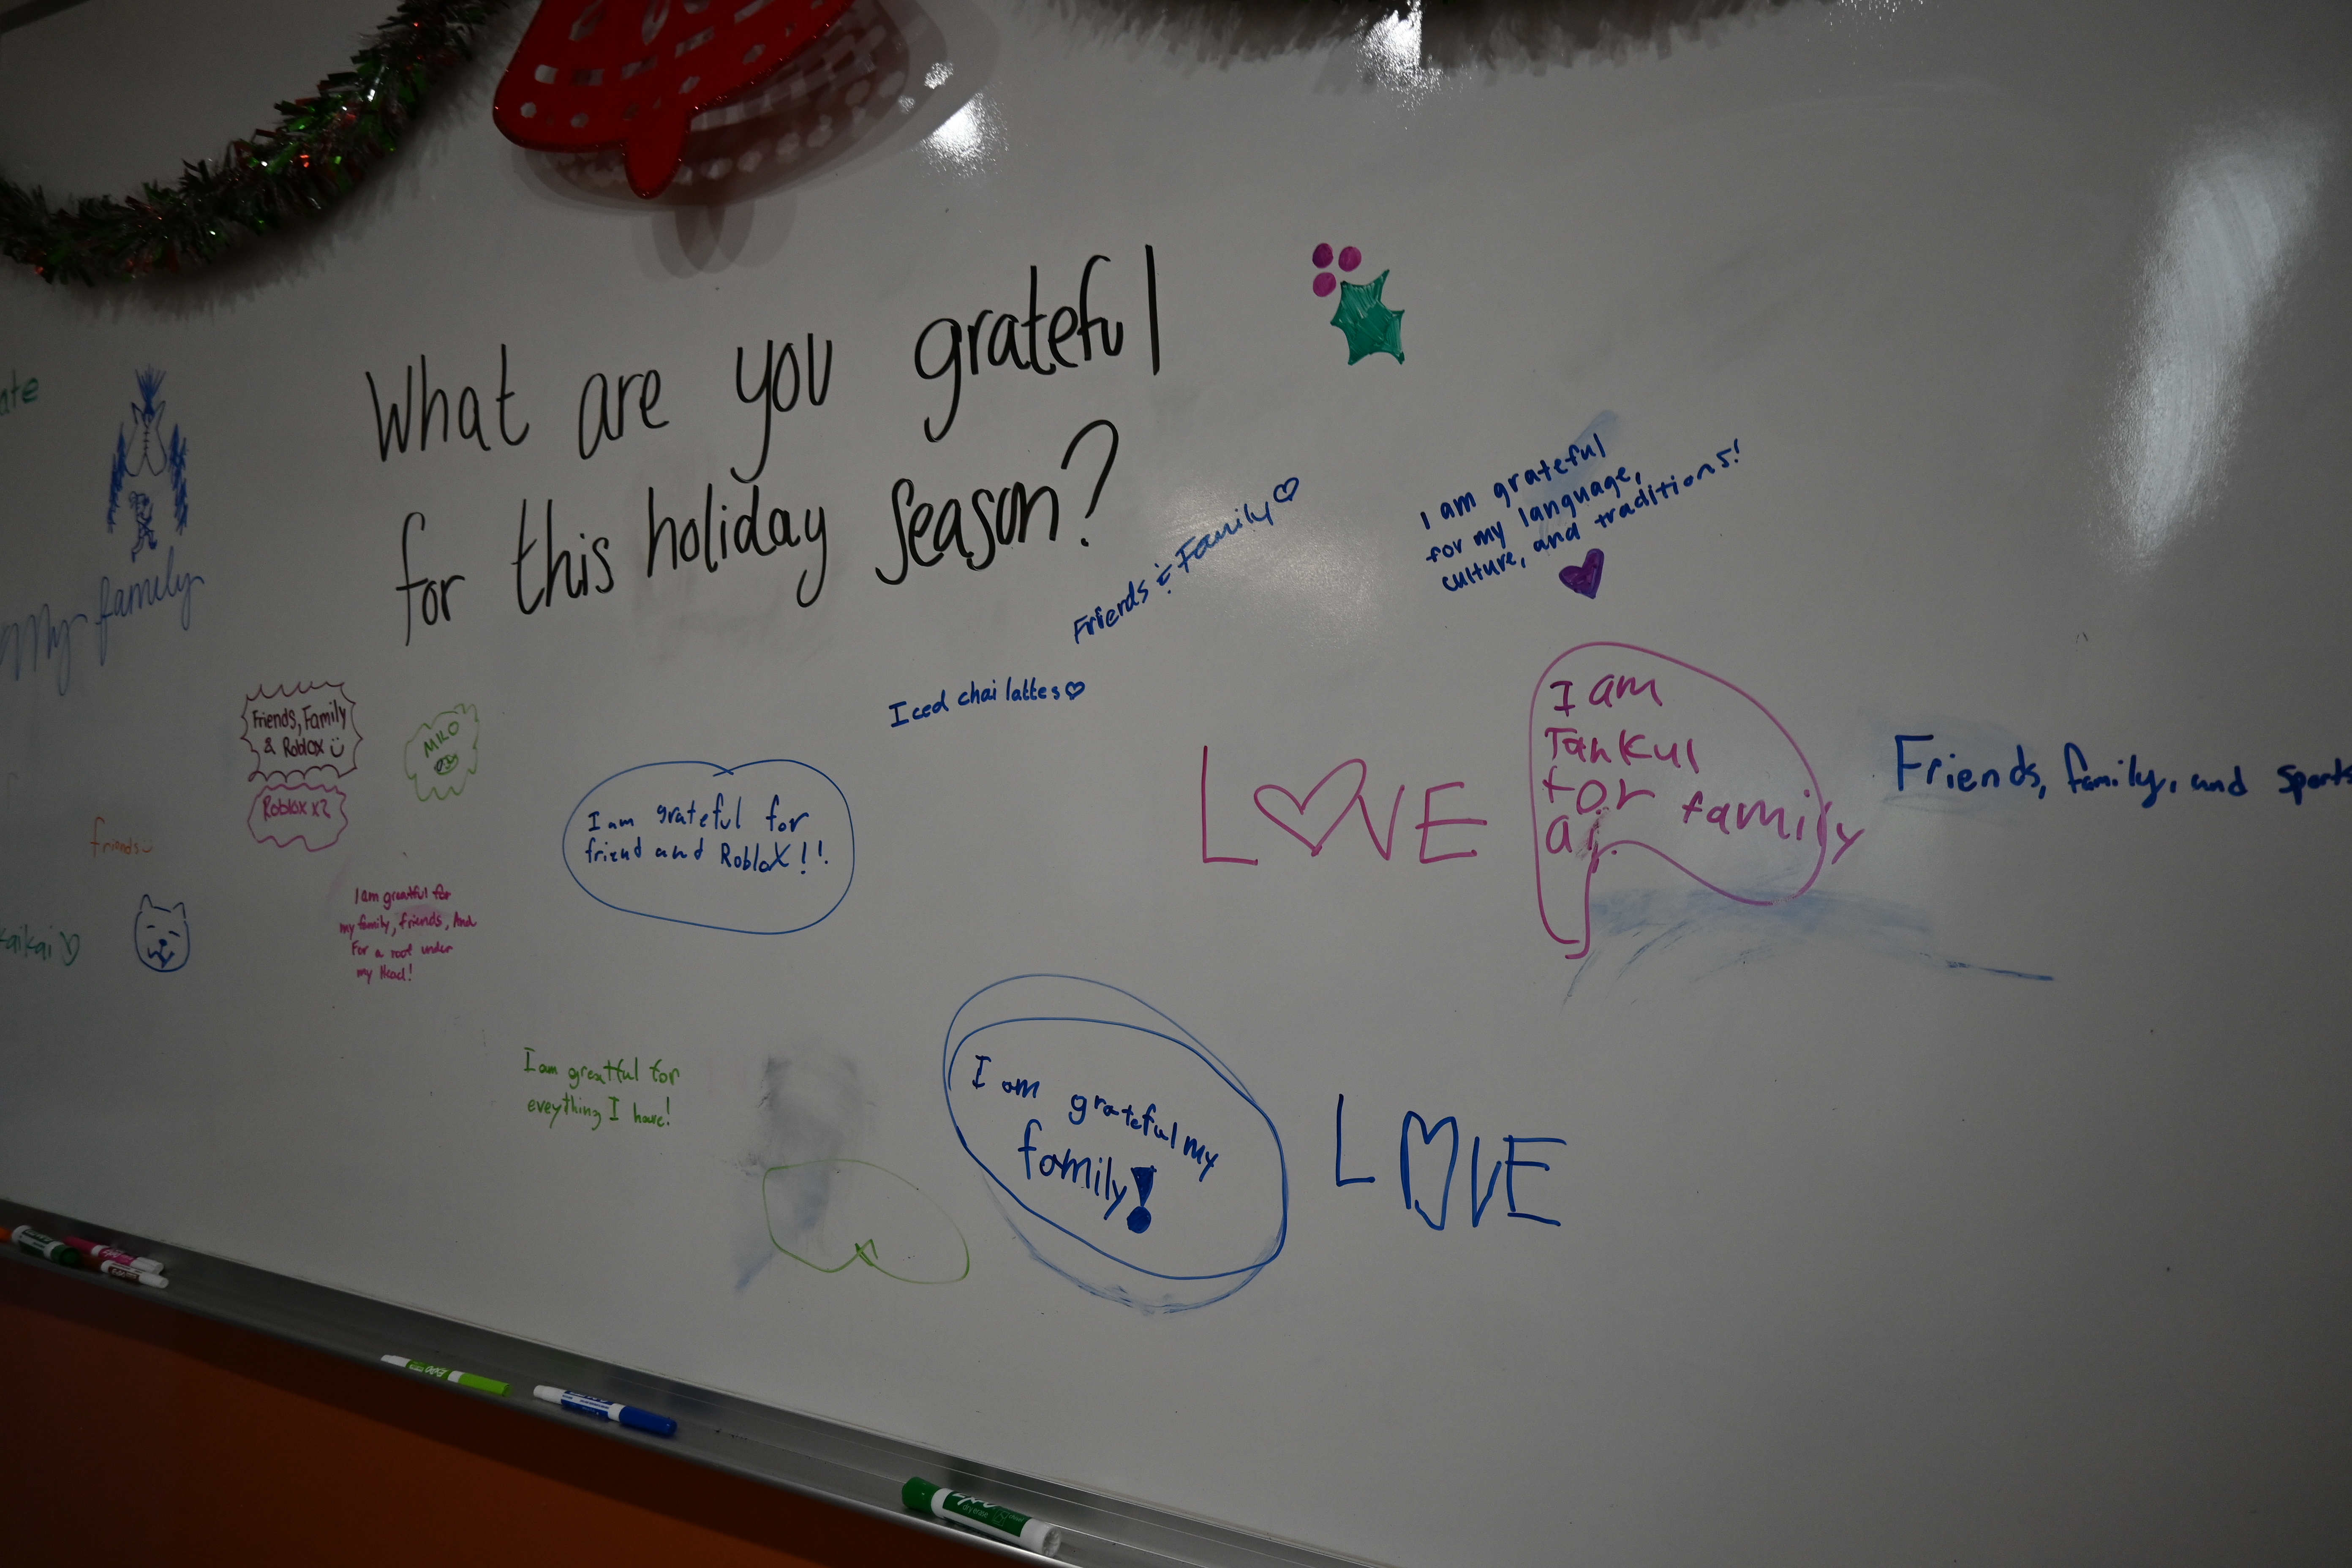 What are you grateful
for this holiday season?
My family
Friends, Family
& Roblox
Roblox x2
MILO
friends
kaikai
I am greatful for
my family, friends, And
For a roof under
my Head!
I am grateful for
friend and Roblox!!
Iced chai lattes
Friends & Family
I am grateful
for my language,
culture, and traditions!
LOVE
I am
Tankul
for family
Friends, family, and sports
I am greatful for
eveything I have!
I am grateful my
family!
LOVE
EXPO